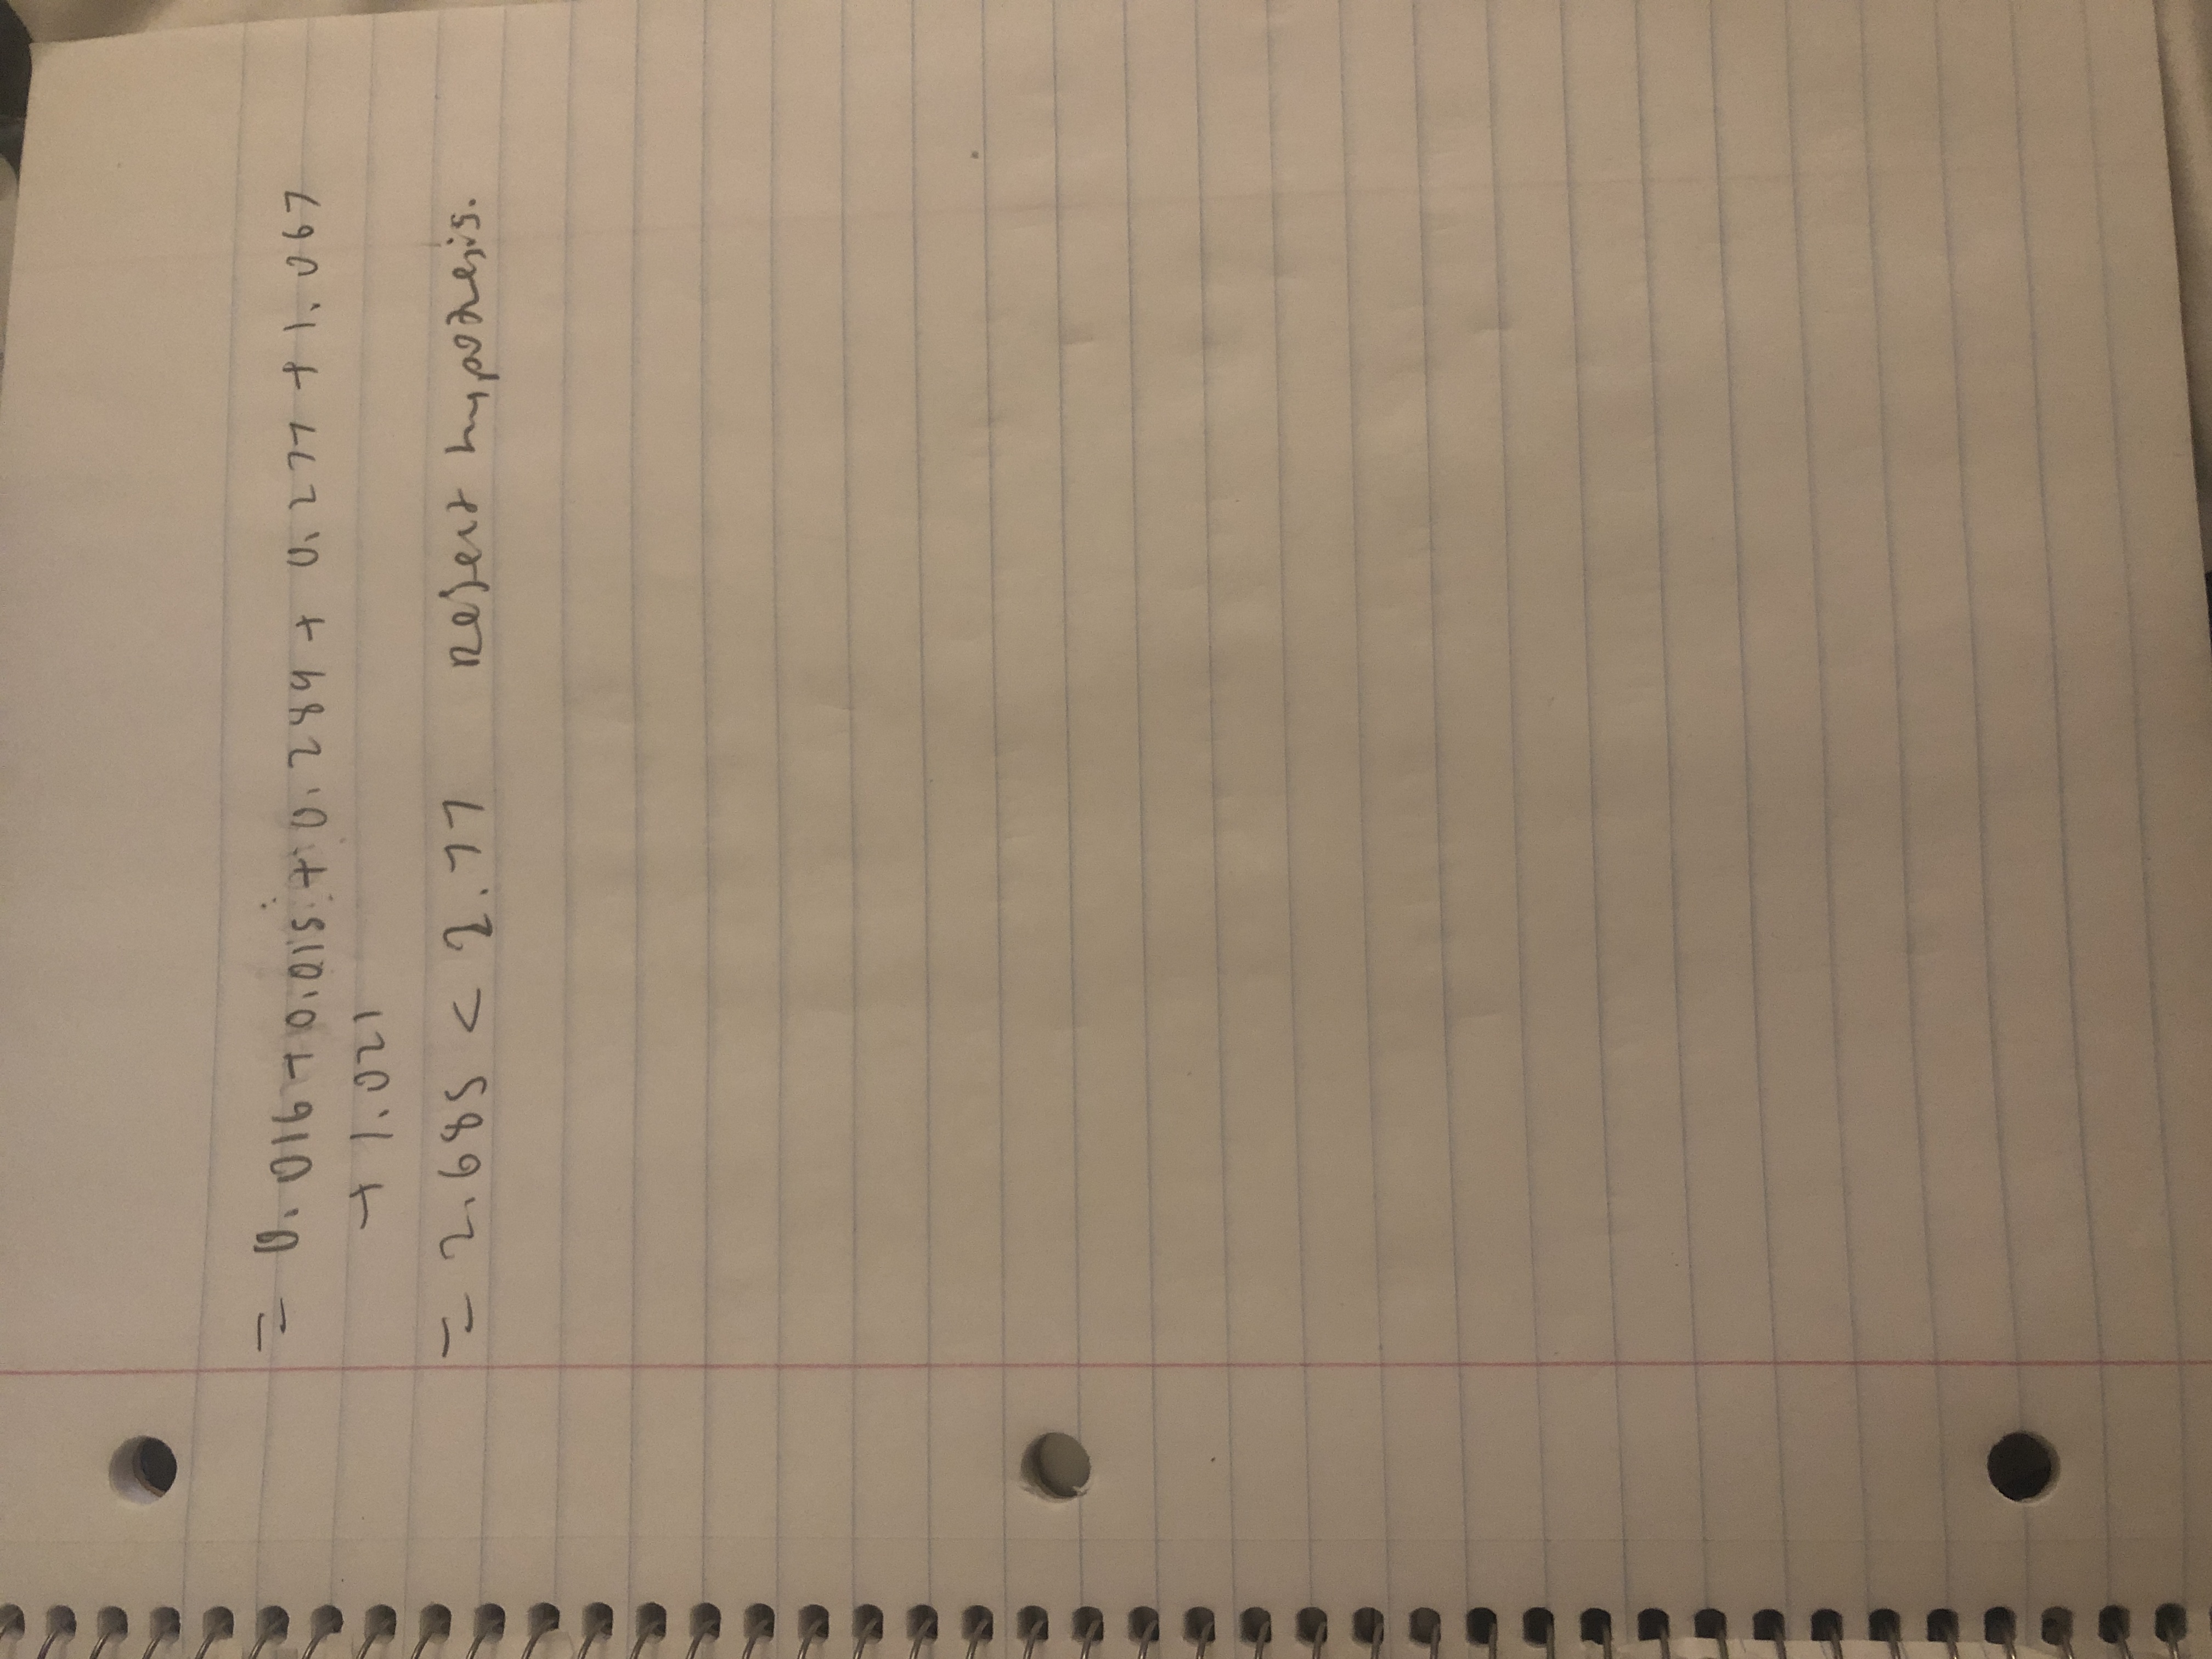 = 0.016 + 0.015 + 0.289 + 0.277 + 1.067
+ 1.021
= 2.685 < 2.77 Reject hypothesis.